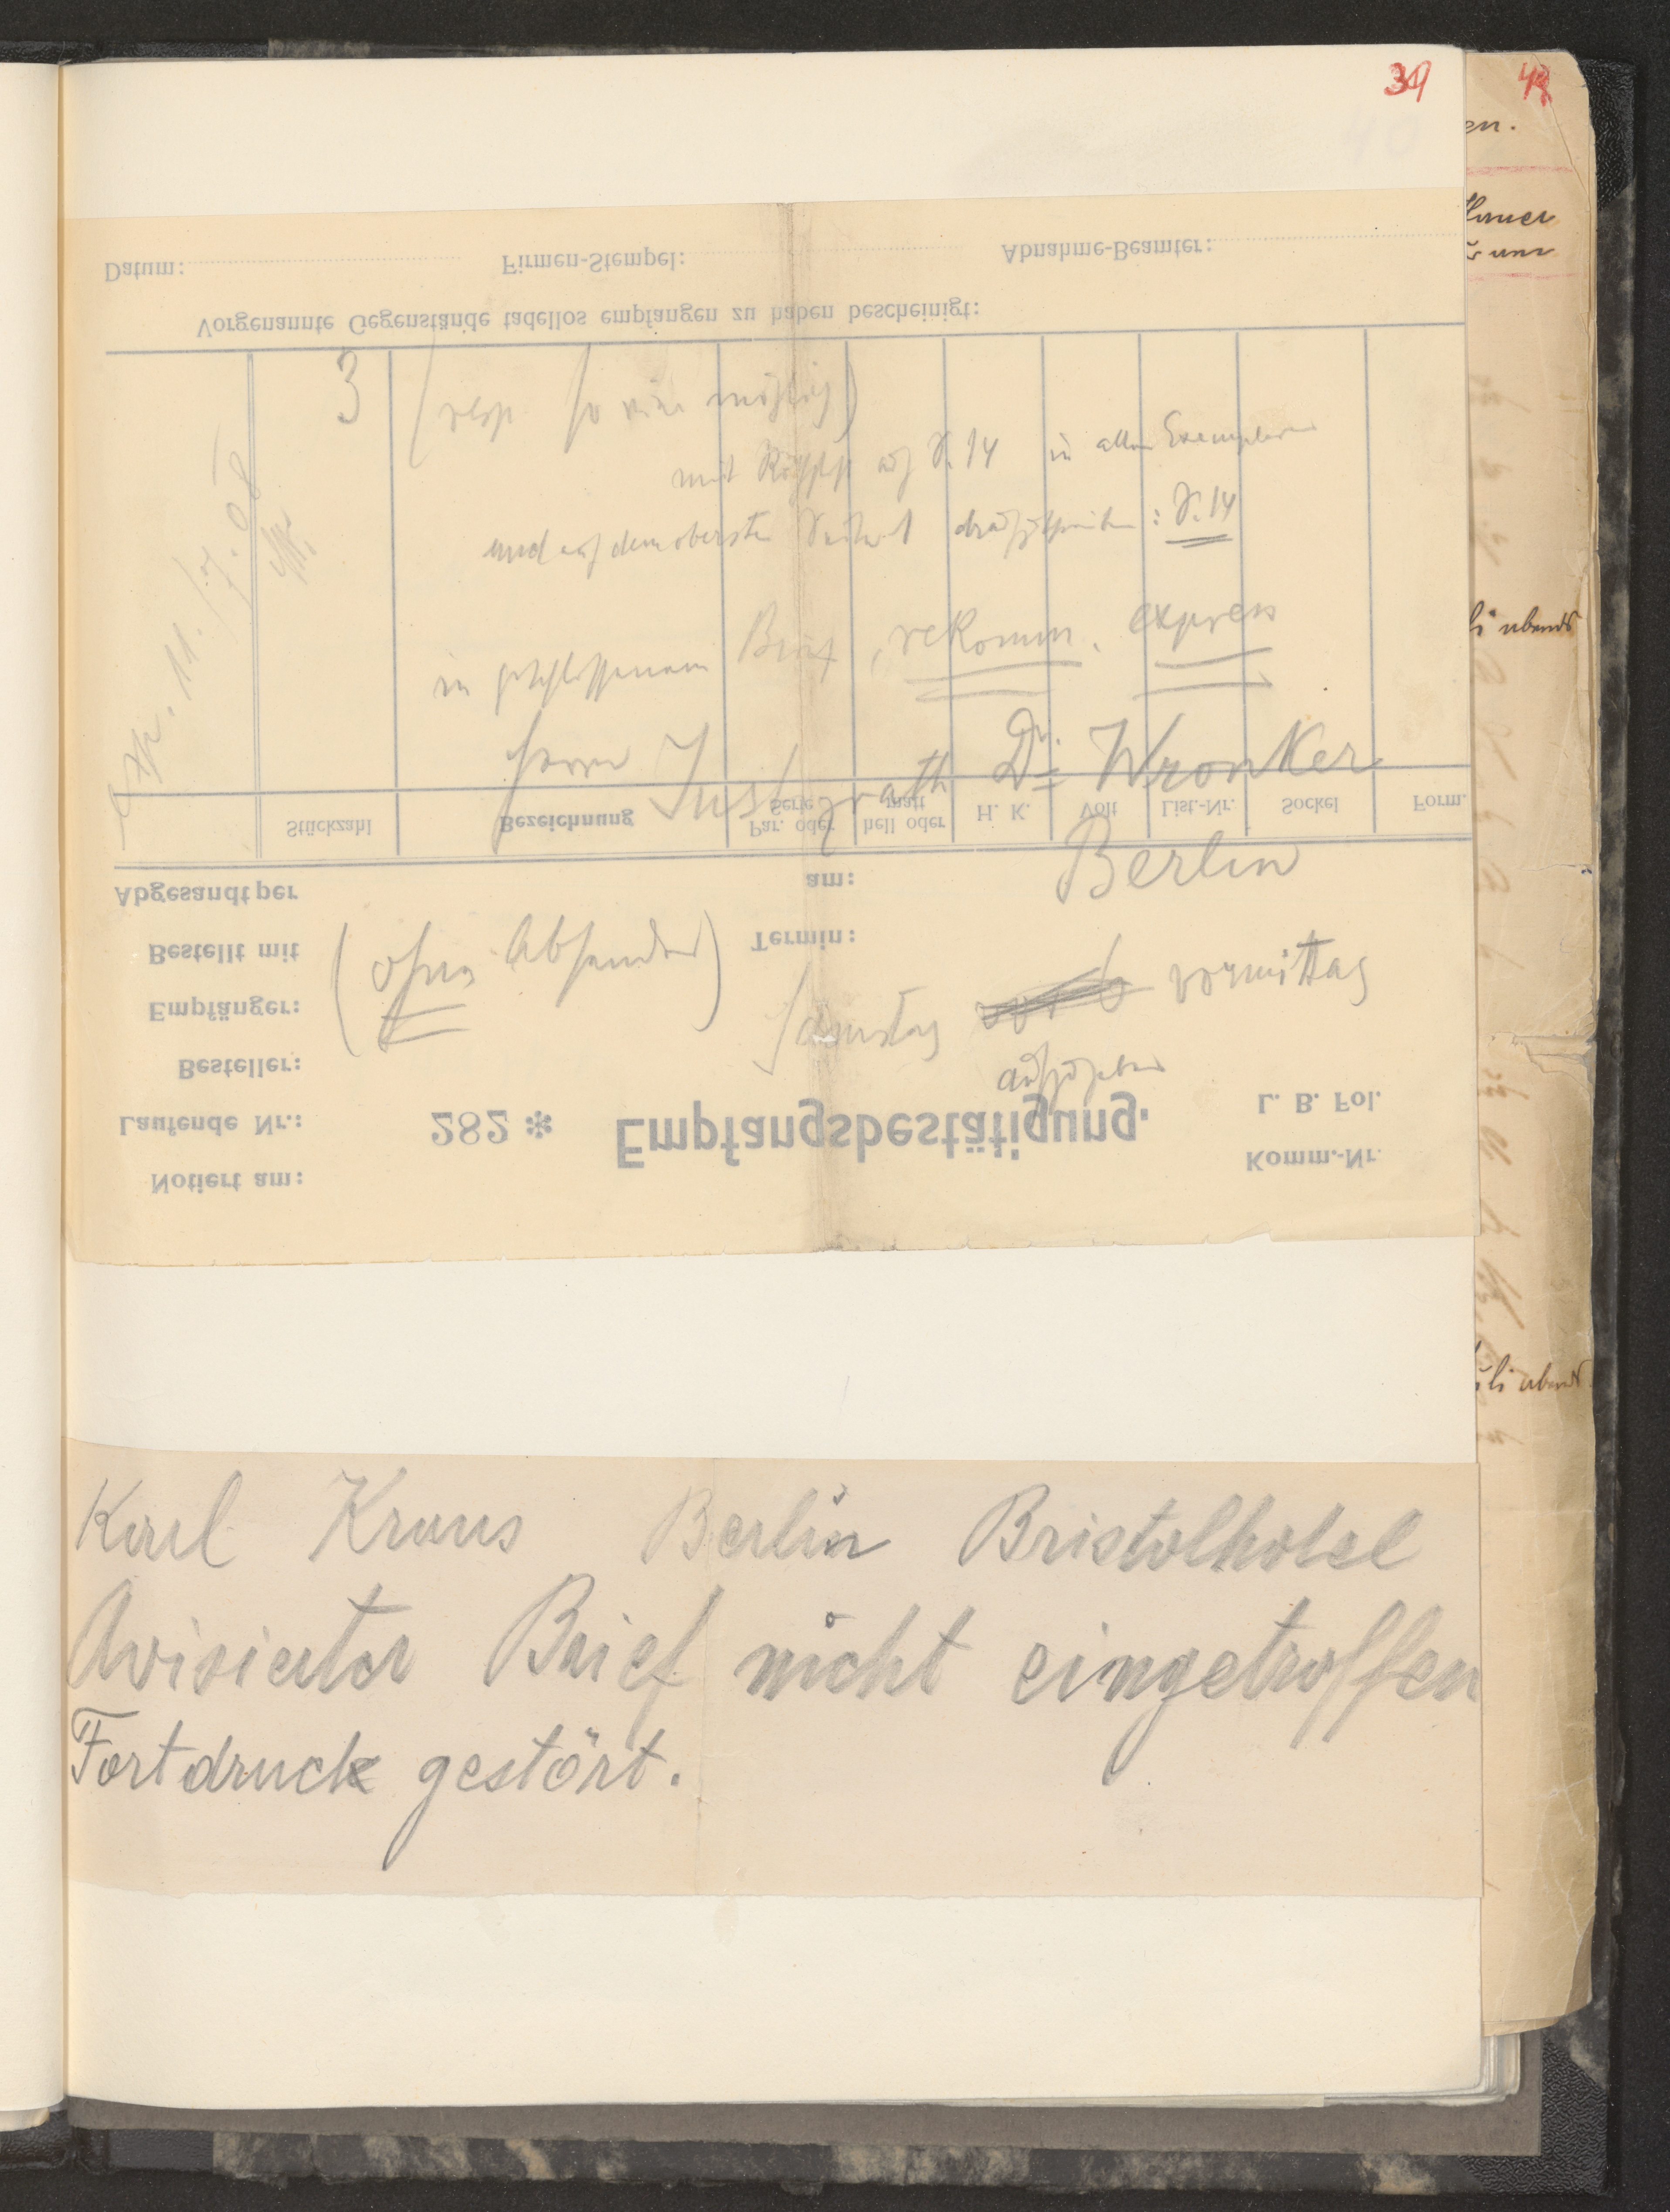 39
40
3 (resp so viele möglich)
mit Röthstift auf S. 14 in allen Exemplaren
und auf dem obersten draufzuschreiben: S. 14
in geschlossenem Brief, rekomm. express
Herrn Justizrath Dr. Wronker
Berlin
(ohne Absender)
Samstag vormittag
aufzugeben
Exp. 11./7. 08
Datum: Firmen-Stempel: Abnahme-Beamter:
Vorgenannte Gegenstände tadellos empfangen zu haben bescheinigt:
Stückzahl Bezeichnung Serie Par. oder matt hell oder H. K. Volt List.-Nr. Sockel Form.
Abgesandt per am:
Bestellt mit Termin:
Empfänger:
Besteller:
Laufende Nr.: 282 * Empfangsbestätigung. L. B. Fol.
Notiert am: Komm.-Nr.
Karl Kraus Berlin Bristolhotel
Avisierter Brief nicht eingetroffen
Fortdruck gestört.
en.
li abends
uli abends